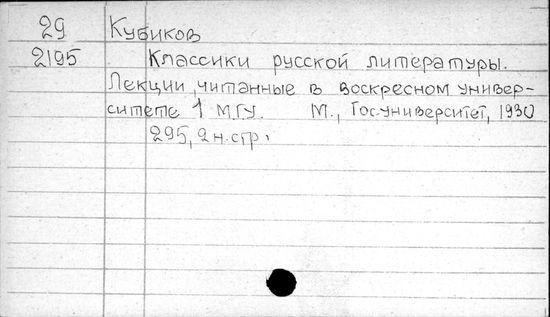 29 Кубиков
2195 Классики русской литературы.
Лекции, читанные в воскресном универ-
ситете 1 МГУ. М., Гос.университет, 1930
295, 2 н.стр.